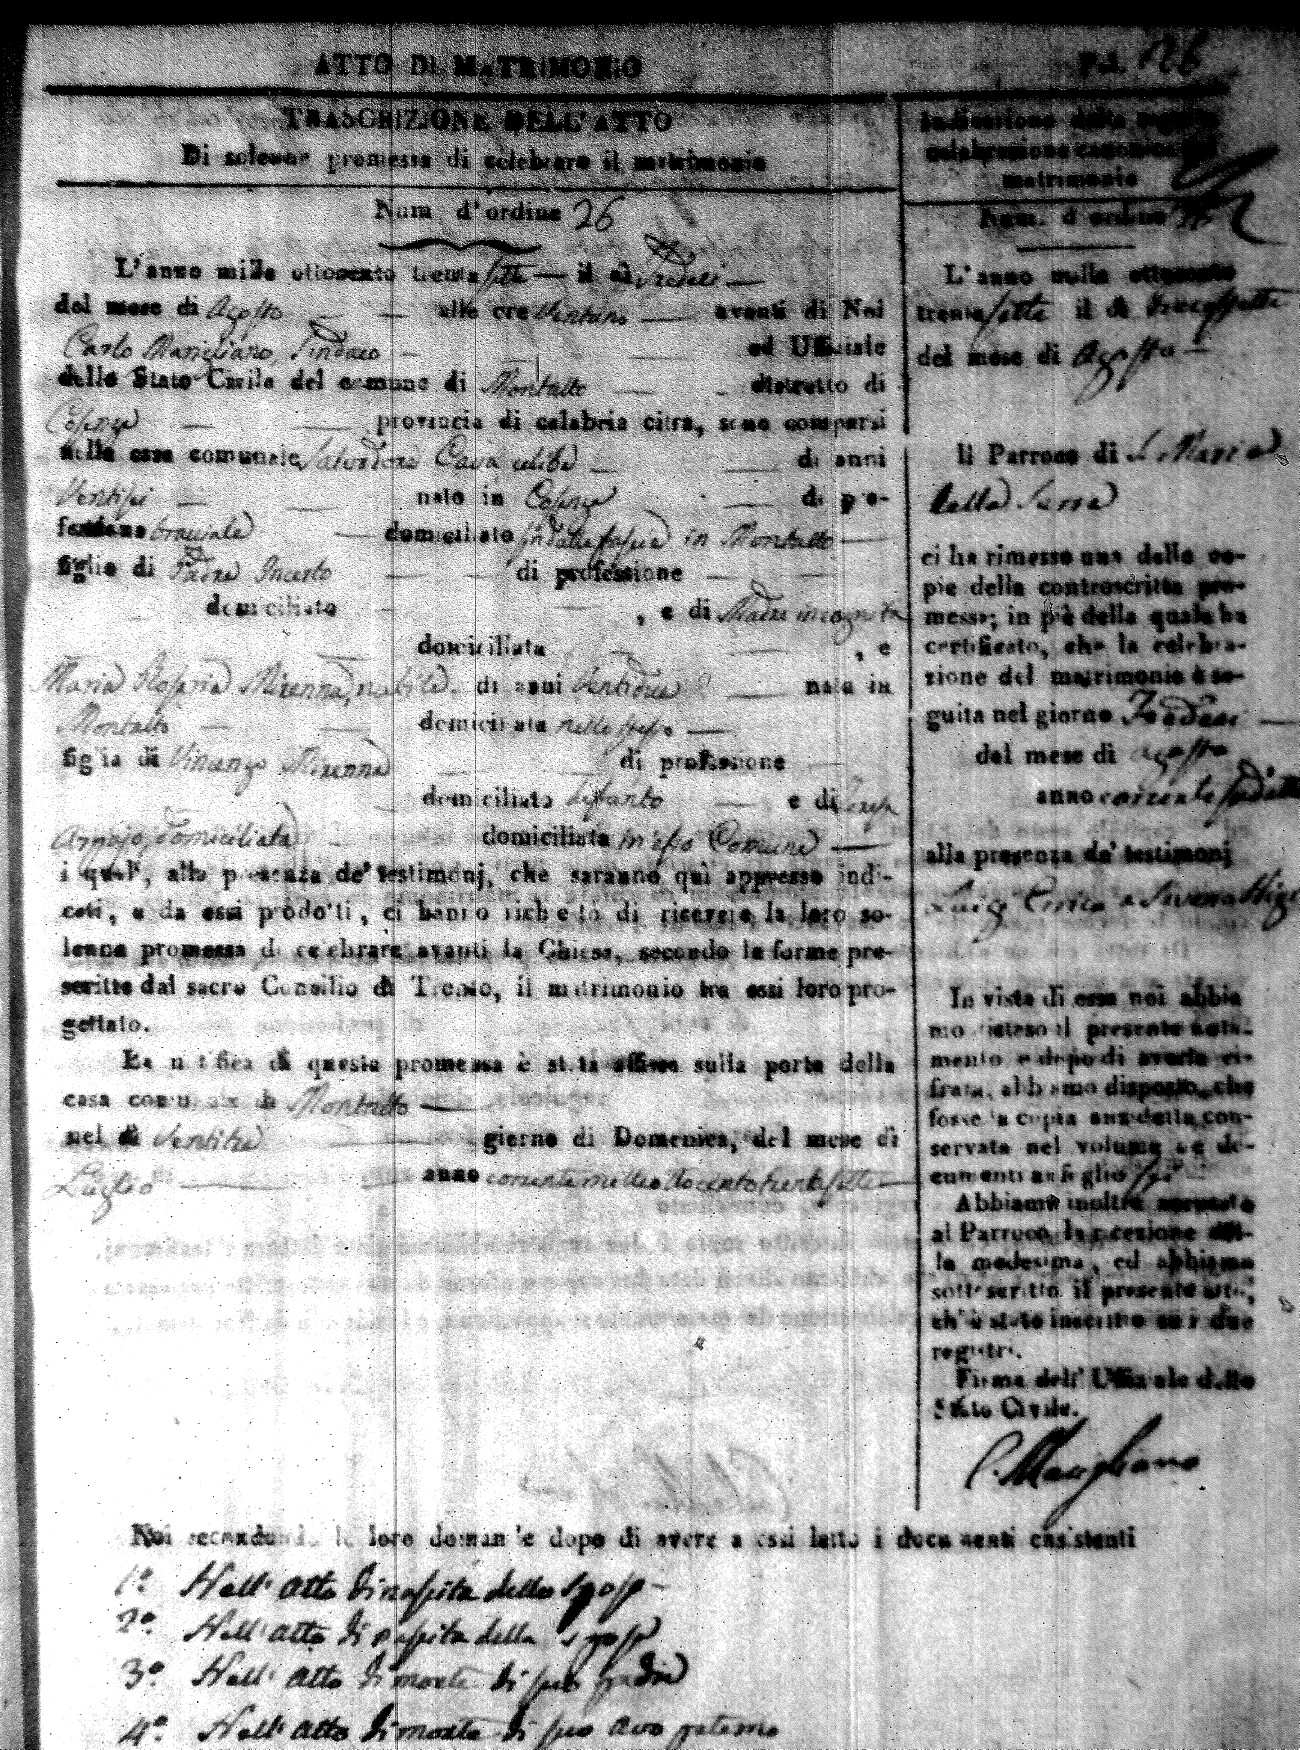 ATTO DI MATRIMONIO
126
TRASCRIZIONE DELL'ATTO
Di solenne promessa di celebrare il matrimonio
Num d'ordine 26
L'anno mille ottocento trenta sette — il dì
del mese di Agosto — — alle ore — avanti di Noi
Carlo Marigliano Sindaco — — ed Uffiziale
dello Stato Civile del comune di Montalto — distretto di
Cosenza — — provincia di calabria citra, sono comparsi
nella casa comunale Salvatore celibe — — di anni
— nato in Cosenza — di pro-
fessione bracciale — domiciliato in Montalto —
figlio di Padre Incerto — — di professione — —
domiciliato — — , e di Madre incognita
— domiciliata — — , e
Maria Rosaria Mirenna, nubile di anni — nata in
Montalto — — domiciliata nello stesso —
figlia di Vincenzo Mirenna — — di professione —
— domiciliato defunto — e di
domiciliata — domiciliata in esso Comune —
i quali, alla presenza de' testimonj, che saranno quì appresso indi-
cati, e da essi prodotti, ci hanno richiesto di ricevere la loro so-
lenne promessa di celebrare avanti la Chiesa, secondo le forme pre-
scritte dal sacro Consilio di Trento, il matrimonio tra essi loro pro-
gettato.
La notifica di questa promessa è stata affissa sulla porta della
casa comunale di Montalto —
nel dì Ventitre — giorno di Domenica, del mese di
Luglio — anno corrente milleottocentotrentasette —
Indicazione della seguita
celebrazione canonica del
matrimonio
Num. d'ordine
L'anno mille ottocento
trenta sette il dì
del mese di Agosto —
Il Parroco di S. Maria
della Serra
ci ha rimesso una delle co-
pie della controscritta pro-
messa; in piè della quale ha
certificato, che la celebra-
zione del matrimonio è se-
guita nel giorno —
del mese di agosto
anno corrente
alla presenza de' testimonj
Luigi
In vista di essa noi abbia
mo disteso il presente nota-
mento e dopo di averla ci-
frata, abbiamo disposto, che
fosse la copia anzidetta con-
servata nel volume de' do-
cumenti al foglio
Abbiamo inoltre accusato
al Parroco la ricezione del-
la medesima, ed abbiamo
sottoscritto il presente atto,
ch'è stato inscritto su i due
registri.
Firma dell' Uffiziale dello
Stato Civile.
C. Marigliano
Noi secondando le loro domande dopo di avere a essi letto i documenti consistenti
1.° Nell' atto di nascita dello sposo —
2.° Nell' atto di nascita della sposa
3.° Nell' atto di morte di suo padre
4.° Nell' atto di morte di suo avo paterno